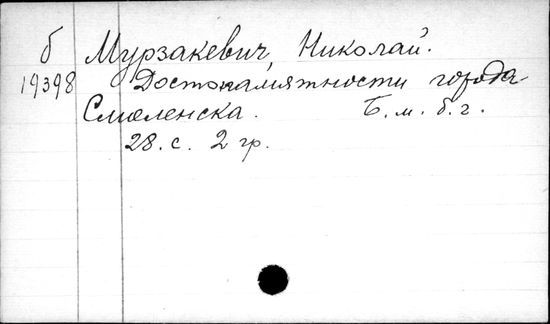 б Мурзакевич, Николай.
19398 Достопамятности города
Смоленска. Б. м. б. г.
28. с. 2 гр.